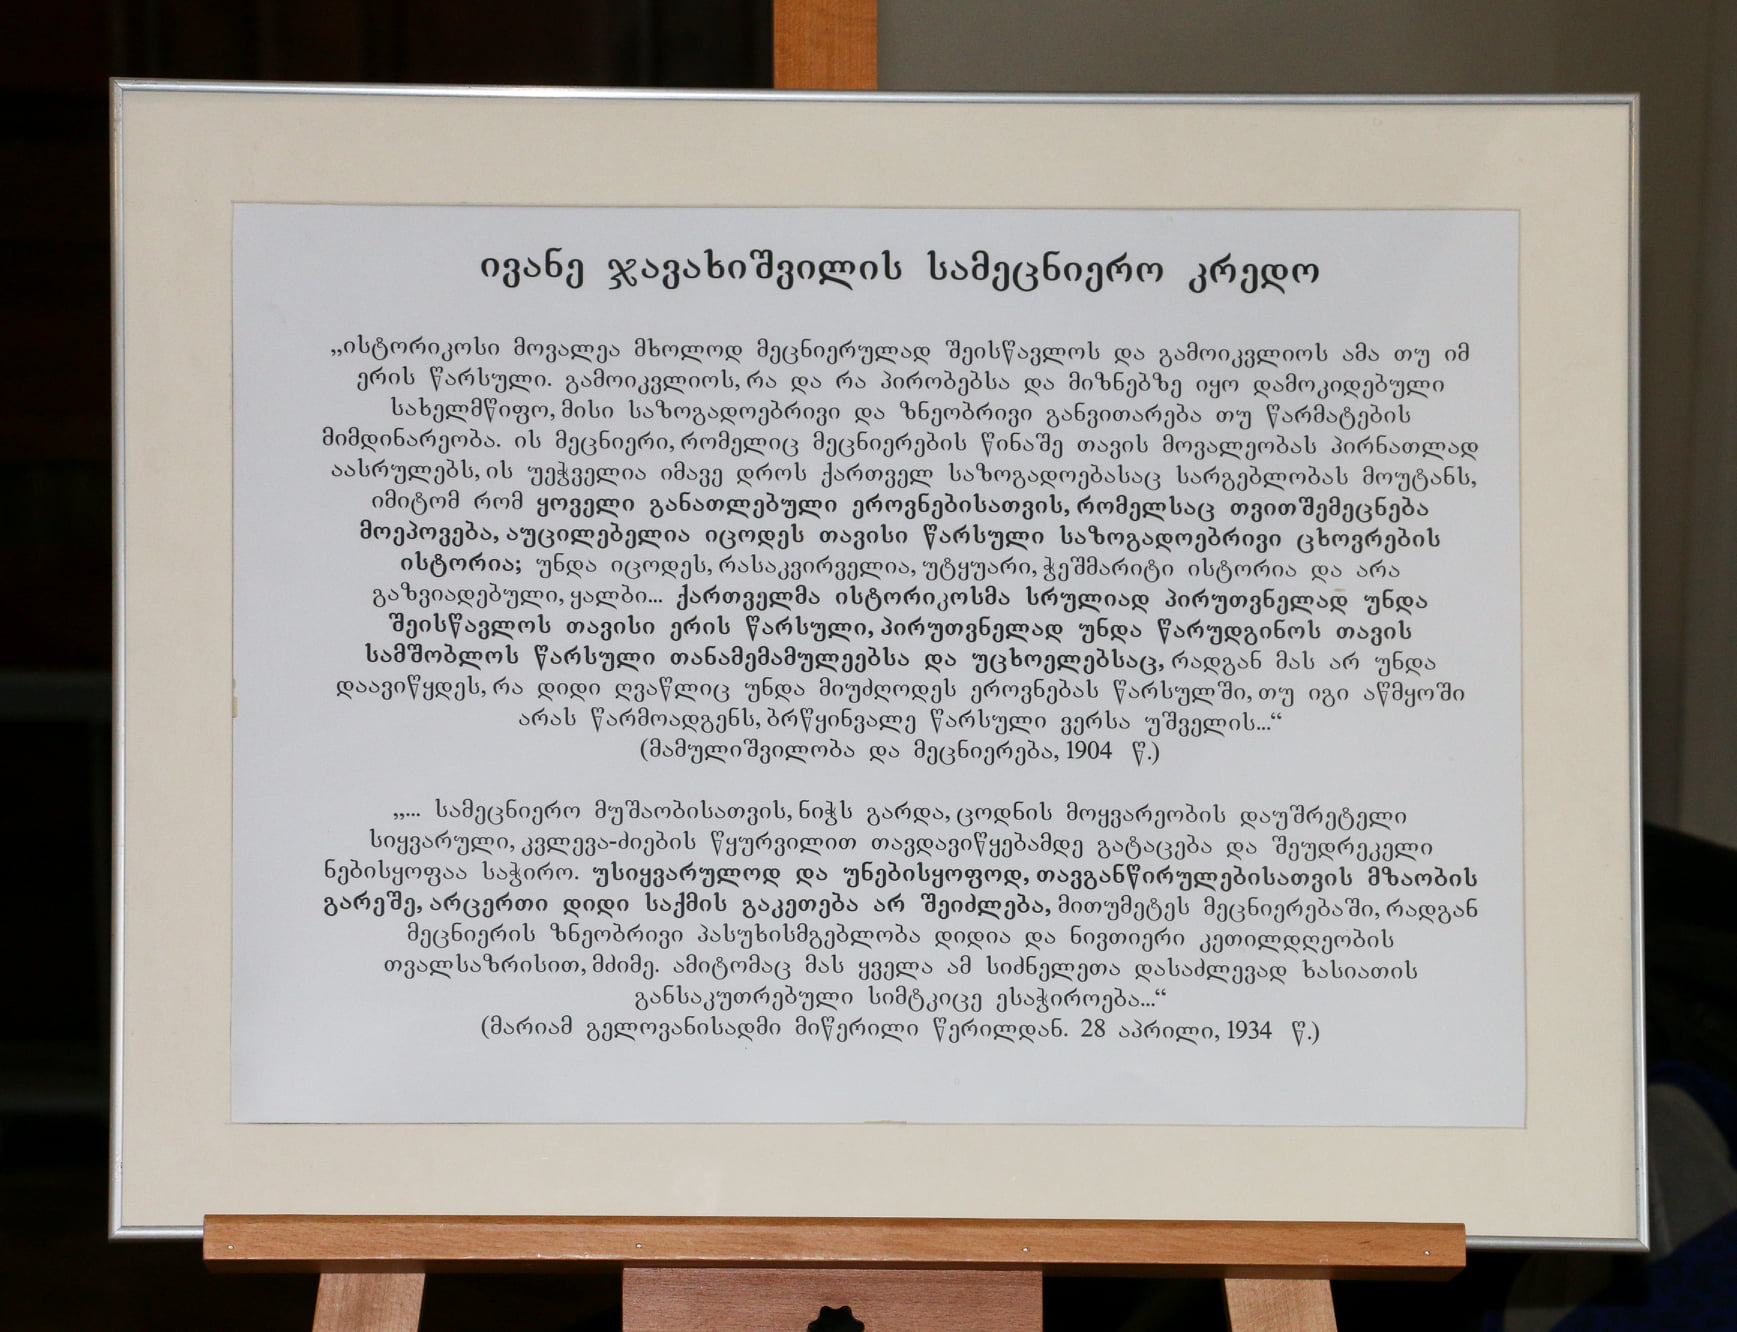 ივანე ჯავახიშვილის სამეცნიერო კრედო
„ისტორიკოსი მოვალეა მხოლოდ მეცნიერულად შეისწავლოს და გამოიკვლიოს ამა თუ იმ
ერის წარსული. გამოიკვლიოს, რა და რა პირობებსა და მიზნებზე იყო დამოკიდებული
სახელმწიფო, მისი საზოგადოებრივი და ზნეობრივი განვითარება თუ წარმატების
მიმდინარეობა. ის მეცნიერი, რომელიც მეცნიერების წინაშე თავის მოვალეობას პირნათლად
აასრულებს, ის უეჭველია იმავე დროს ქართველ საზოგადოებასაც სარგებლობას მოუტანს,
იმიტომ რომ ყოველი განათლებული ეროვნებისათვის, რომელსაც თვითშემეცნება
მოეპოვება, აუცილებელია იცოდეს თავისი წარსული საზოგადოებრივი ცხოვრების
ისტორია; უნდა იცოდეს, რასაკვირველია, უტყუარი, ჭეშმარიტი ისტორია და არა
გაზვიადებული, ყალბი... ქართველმა ისტორიკოსმა სრულიად პირუთვნელად უნდა
შეისწავლოს თავისი ერის წარსული, პირუთვნელად უნდა წარუდგინოს თავის
სამშობლოს წარსული თანამემამულეებსა და უცხოელებსაც, რადგან მას არ უნდა
დაავიწყდეს, რა დიდი ღვაწლიც უნდა მიუძღოდეს ეროვნებას წარსულში, თუ იგი აწმყოში
არას წარმოადგენს, ბრწყინვალე წარსული ვერსა უშველის...“
(მამულიშვილობა და მეცნიერება, 1904 წ.)
„... სამეცნიერო მუშაობისათვის, ნიჭს გარდა, ცოდნის მოყვარეობის დაუშრეტელი
სიყვარული, კვლევა-ძიების წყურვილით თავდავიწყებამდე გატაცება და შეუდრეკელი
ნებისყოფაა საჭირო. უსიყვარულოდ და უნებისყოფოდ, თავგანწირულებისათვის მზაობის
გარეშე, არცერთი დიდი საქმის გაკეთება არ შეიძლება, მითუმეტეს მეცნიერებაში, რადგან
მეცნიერის ზნეობრივი პასუხისმგებლობა დიდია და ნივთიერი კეთილდღეობის
თვალსაზრისით, მძიმე. ამიტომაც მას ყველა ამ სიძნელეთა დასაძლევად ხასიათის
განსაკუთრებული სიმტკიცე ესაჭიროება...“
(მარიამ გელოვანისადმი მიწერილი წერილდან. 28 აპრილი, 1934 წ.)